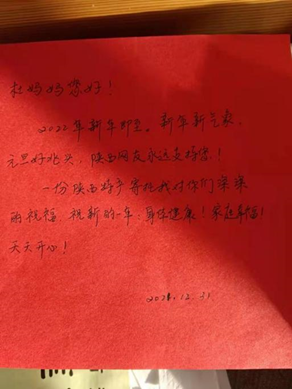 杜妈妈您好！
2022年新年即至，新年新气象，
元旦好兆头，陕西网友永远支持您！
一份陕西特产寄托我对你们深深
的祝福，祝新的一年：身体健康！家庭幸福！
天天开心！
2021.12.31